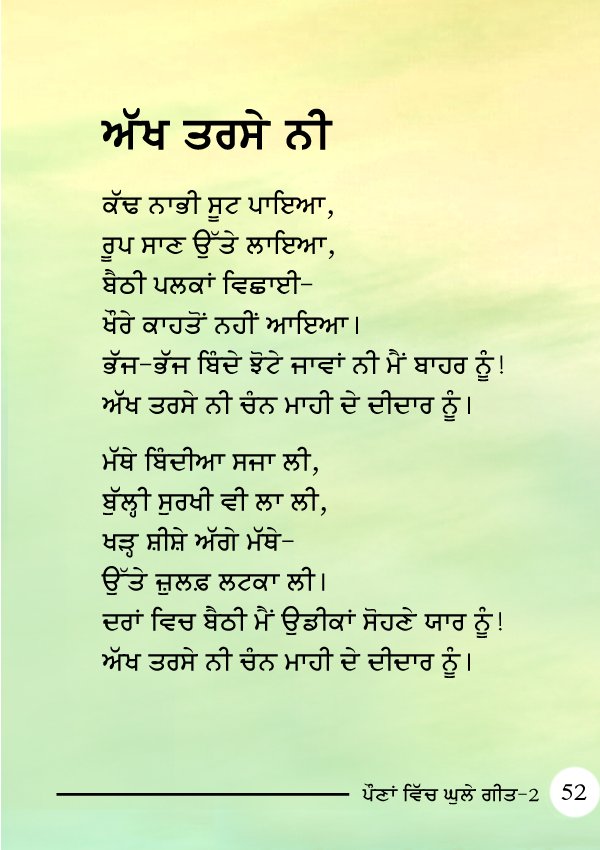 ਅੱਖ ਤਰਸੇ ਨੀ
ਕੱਢ ਨਾਭੀ ਸੂਟ ਪਾਇਆ,
ਰੂਪ ਸਾਣ ਉੱਤੇ ਲਾਇਆ,
ਬੈਠੀ ਪਲਕਾਂ ਵਿਛਾਈ-
ਖੌਰੇ ਕਾਹਤੋਂ ਨਹੀਂ ਆਇਆ।
ਭੱਜ-ਭੱਜ ਬਿੰਦੇ ਝੋਟੇ ਜਾਵਾਂ ਨੀ ਮੈਂ ਬਾਹਰ ਨੂੰ!
ਅੱਖ ਤਰਸੇ ਨੀ ਚੰਨ ਮਾਹੀ ਦੇ ਦੀਦਾਰ ਨੂੰ।
ਮੱਥੇ ਬਿੰਦੀਆ ਸਜਾ ਲੀ,
ਬੁੱਲ੍ਹੀ ਸੁਰਖੀ ਵੀ ਲਾ ਲੀ,
ਖੜ੍ਹ ਸ਼ੀਸ਼ੇ ਅੱਗੇ ਮੱਥੇ-
ਉੱਤੇ ਜ਼ੁਲਫ਼ ਲਟਕਾ ਲੀ।
ਦਰਾਂ ਵਿਚ ਬੈਠੀ ਮੈਂ ਉਡੀਕਾਂ ਸੋਹਣੇ ਯਾਰ ਨੂੰ!
ਅੱਖ ਤਰਸੇ ਨੀ ਚੰਨ ਮਾਹੀ ਦੇ ਦੀਦਾਰ ਨੂੰ।
ਪੌਣਾਂ ਵਿੱਚ ਘੁਲੇ ਗੀਤ-2 52